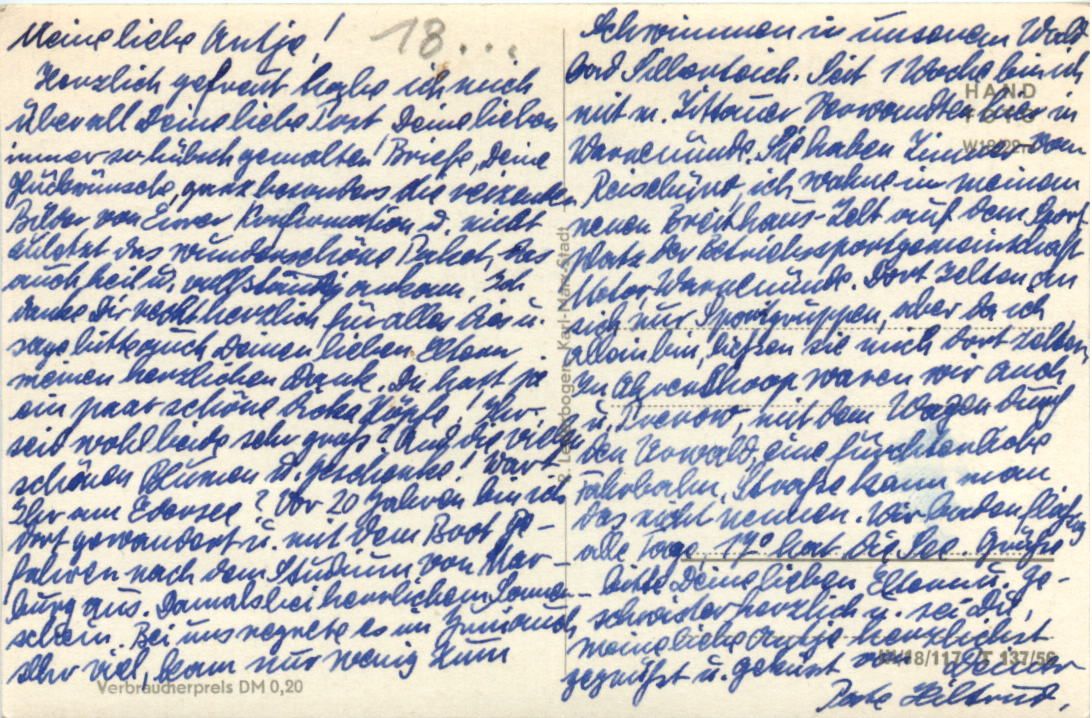 Meine liebe Antje!
18...
Herzlich gefreut habe ich mich
über all Deine liebe Post Deine lieben
immer so hübsch gemalten Briefe, Deine
Glückwünsche, ganz besonders die reizenden
Bilder von Eurer Konfirmation u. nicht
zuletzt das wunderschöne Paket, das
auch heil u. vollständig ankam. Ich
danke Dir recht herzlich für alles dies u.
sage bitte auch Deinen lieben Eltern
meinen herzlichen Dank. Du hast ja
ein paar schöne dicke Zöpfe! Ihr
seid wohl beide sehr groß? Und die vielen
schönen Blumen u. Geschenke! Wart
Ihr am Edersee? Vor 20 Jahren bin ich
dort gewandert u. mit dem Boot ge-
fahren nach dem Studium von Mar-
burg aus. Damals bei herrlichem Sonnen-
schein. Bei uns regnete es im Juni auch
sehr viel, kam nur wenig zum
Verbraucherpreis DM 0,20
Karl-Marx-Stadt
Schwimmen in unserem Wald
bad Silberteich. Seit 1 Woche bin ich
HAND
mit m. Zittauer Verwandten hier in
Warnemünde. Sie haben Zimmer vom
Reisebüro, ich wohne in meinem
neuen Breithaus-Zelt auf dem Sport
platz der Betriebssportgemeinschaft
Motor Warnemünde. Dort zelten an
sich nur Sportgruppen, aber da ich
allein bin, ließen sie mich dort zelten
In Ahrenshoop waren wir auch
u. Prerow, mit dem Wagen durch
den Urwald, eine fürchterliche
Fahrbahn, Straße kann man
das nicht nennen. Wir baden fleißig
alle Tage, 17° hat die See. Grüße
bitte Deine lieben Eltern u. Ge-
schwister herzlich u. sei Du,
meine liebe Antje herzlichst
gegrüßt u. geküsst von Deiner
18/117 137/58
Pate Hiltrud.